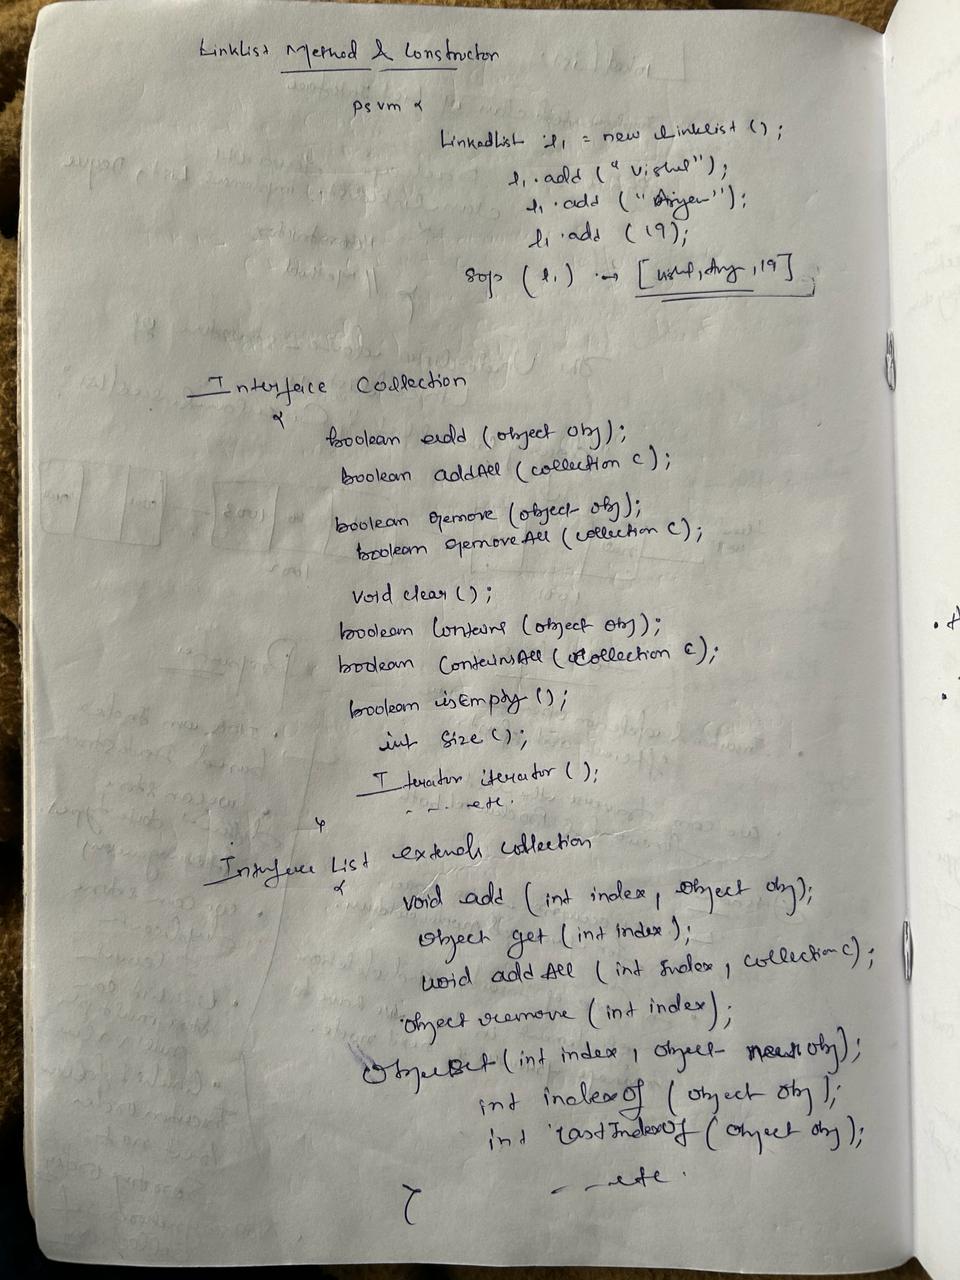 LinkList Method & Constructor
psvm {
LinkedList l1 = new Linklist ();
l1.add ("Vishal");
l1.add ("Aryan");
l1.add (19);
Sop (l1) → [, 19]
Interface Collection
{
boolean add (object obj);
boolean addAll (collection c);
boolean remove (object obj);
boolean removeAll (collection c);
void clear ();
boolean contains (object obj);
boolean ContainsAll (collection c);
boolean isEmpty ();
int Size ();
Iterator iterator ();
- - - etc.
}
Interface List extends collection
{
void add (int index, object obj);
object get (int index);
void addAll (int index, collection c);
object remove (int index);
object set (int index, object new obj);
int indexOf (object obj);
int lastIndexOf (object obj);
- - etc.
}